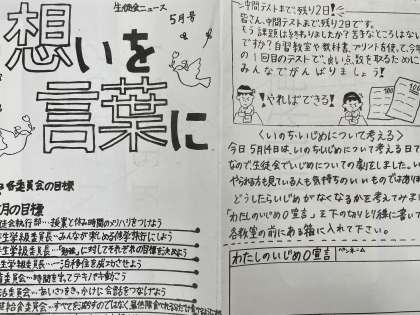 生徒会ニュース
5月号
想いを
言葉に
各委員会の目標
月の目標
執行部…授業と休み時間のメリハリをつけよう
学級委員長…みんなが楽しめる修学旅行にしよう
学級委員長…「勉強」に対してそれぞれの目標を決めよう
学級委員長…一泊移住を成功させよう
委員会…時間を守ってテキパキ動こう
委員会…あいさつをきっかけに会話をつなげよう
中間テストまで、残り2日!
皆さん、中間テストまで、残り2日です。
もう課題は終わりましたか?苦手なところはない
ですか?自習教室や教科書、プリントを使って、今年
の1回目のテストで、良い点数を取るために
みんなでがんばりましょう!
やればできる!
100
100
<いのち・いじめについて考える>
今日5月14日は、いのち・いじめについて考える日で
なので生徒会でいじめについての劇をしました。い
やられる方も見ている人も気持ちのいいものではありま
どうしたらいじめがなくなるかを考えてみま
「わたしのいじめ0宣言」を下のなりとり線に書いて
各教室の前にある箱に入れて下さい。
わたしのいじめ0宣言
ペンネーム